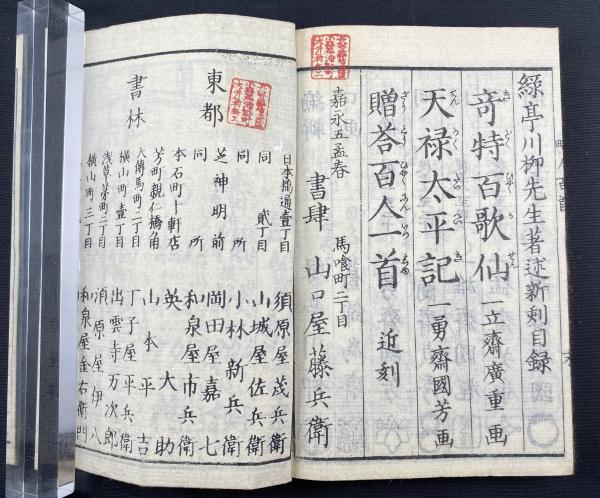 緑亭川柳先生著述新刻目録
奇特百歌仙 一立齋廣重画
天禄太平記 一勇齋國芳画
贈答百人一首 近刻
嘉永五孟春
馬喰町二丁目
書肆 山口屋藤兵衛
東都
書林
日本橋通壹丁目 須原屋茂兵衛
同 貳丁目 山城屋佐兵衛
同 所 小林新兵衛
芝神明前 岡田屋嘉七
同 所 和泉屋市兵衛
本石町十軒店 英大助
芳町親仁橋角 山本平吉
大傳馬町二丁目 丁子屋平兵衛
横山町壹丁目 出雲寺万次郎
浅草茅町二丁目 須原屋伊八
横山町三丁目 和泉屋金右衛門